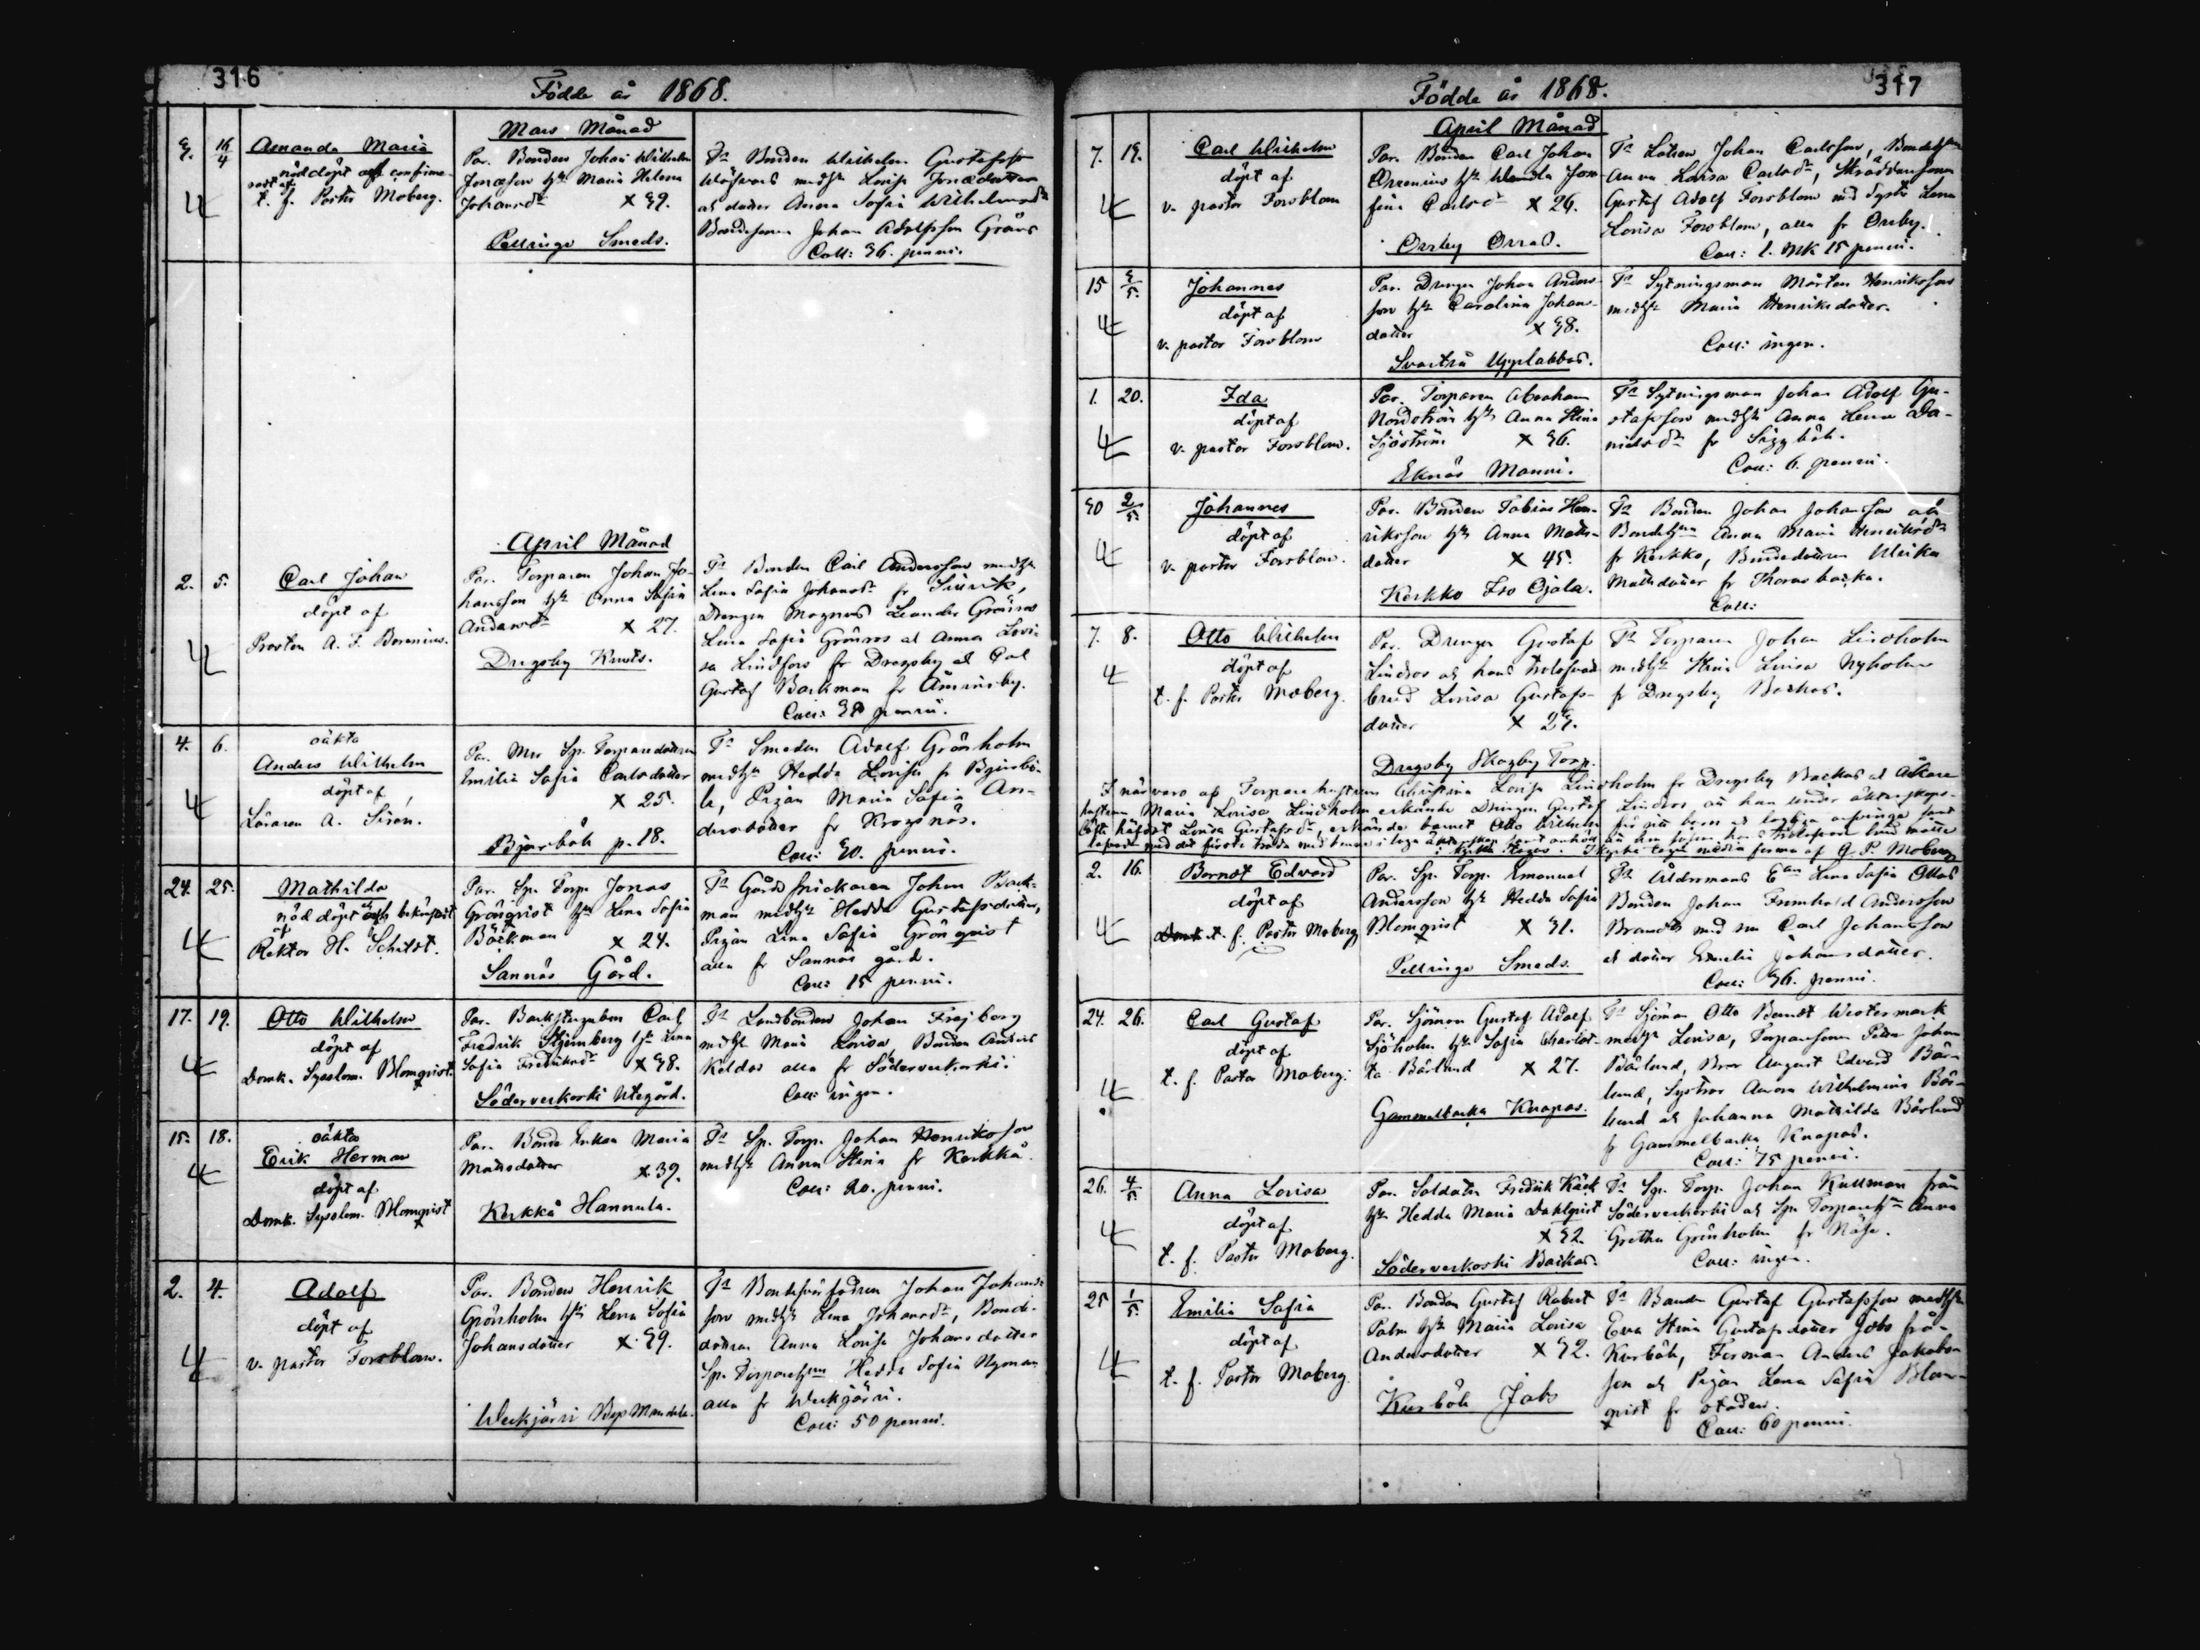 316
Födde år 1868.
Mars Månad
3. 16/4
Amanda Maria
nöddöpt confirme-
radt af
t. f. Pastor Moberg.
Par. Bonden Johan Wilhelm
Jonæson hst Maria Helena
Johansdr x 39.
Pellinge Smeds.
Ts Bonden Wilhelm Gustafsson
medhst Lovisa Jonædotter
dotter Anna Sofia Wilhelmsdr
Bondesonen Johan Adolfsson Gräns
Coll: 36. penni.
April Månad
2. 5.
Carl Johan
döpt af
Prosten A. F. Borenius.
Par. Torparen Johan Jo-
hansson hst Anna Sofia
Andersdr x 27.
Drägsby Knuts.
Ts Bonden Carl Andersson medhst
Lena Sofia Johansdr fr
Drengen Magnus Leander Grönroos
Lena Sofia Grönros at Anna Lovi-
sa Lindfors fr Drägsby at Carl
Gustaf Backman fr
Coll: penni.
4. 6.
oäkta
Anders Wilhelm
döpt af
Läraren A. Sirén.
Par. Mor Sp. Torparedottren
Emilia Sofia Carlsdotter
x 25.
Bjurböle p. 18.
Ts Smeden Adolf Grönholm
medhst Hedda Lovisa fr Bjurbö-
le, Pigan Maria Sofia An-
dersdotter fr Krogsnäs.
Coll: 30. penni.
24. 25.
Mathilda
nöd döpt och bekräftadt
af
Rektor H. Schildt.
Par. Sp. Torp. Jonas
Grönqvist hst Lena Sofia
Bäckman x 24.
Sannäs Gård.
Ts Gårds snickaren Johan Back-
man medhst Hedda Gustafsdotter,
Pigan Lena Sofia Grönqvist
alla fr Sannäs gård.
Coll: 15 penni.
17. 19.
Otto Wilhelm
döpt af
Domk. Sysslom. Blomqvist.
Par. Backstugubon Carl
Fredrik Stjernberg hst Lena
Sofia Fredriksdr x 38.
Söderveckoski Utegård.
Ts Landbonden Johan Frejborg
medhst Maria Lovisa, Bonden Anders
Keldar alla fr Söderveckoski
Coll: ingen.
15. 18.
oäkta
Erik Herman
döpt af
Domk. Sysslom. Blomqvist
Par. Bonde Enkan Maria
Matsdotter x 39.
Kerkko Hannula.
Ts Sp. Torp. Johan Henriksson
medhst Anna Stina fr Kerkko
Coll: 20. penni.
2. 4.
Adolf
döpt af
v. pastor Forsblom.
Par. Bonden Henrik
Grönholm hst Lena Sofia
Johansdotter x 39.
Weckjärvi
Ts Johan Johans-
son medhst Lena Johansdr, Bonde-
dottren Anna Lovisa Johansdotter
Sp. Torparehstn Hedda Sofia Nyman
alla fr Weckjärvi.
Coll: 50 penni.
317
Födde år 1868.
April Månad
7. 19.
Carl Wilhelm
döpt af
v. pastor Forsblom
Par. Bonden Carl Johan
Orrenius hst Wendla Jose-
fina Carlsdr x 26.
Orrby Orras.
Ts Lotsen Johan Carlsson, Bondehstn
Anna Lovisa Carlsdr, Skräddaresonen
Gustaf Adolf Forsblom med Syster Lena
Lovisa Forsblom, alla fr Orrby.
Coll: 1. Mk 15 penni.
15 3/5.
Johannes
döpt af
v. pastor Forsblom
Par. Drengen Johan Anders-
son hst Carolina Johans-
dotter x 38.
Svartså Upplabbas.
Ts Sytningsman Mårten Henriksson
medhst Maria Henriksdotter.
Coll: ingen.
1. 20.
Ida
döpt af
v. pastor Forsblom.
Par. Torparen Abraham
Nordström hst Anna Stina
Sjöström x 36.
Eknäs Manni.
Ts Sytningsman Johan Adolf Gu-
stafsson medhst Anna Lena Da-
nielsdr fr Siggböle.
Coll: 6. penni.
30 2/5.
Johannes
döpt af
v. pastor Forsblom.
Par. Bonden Tobias Hen-
riksson hst Anna Matts-
dotter x 45.
Kerkko Iso Ojala.
Ts Bonden Johan Johansson och
Bondehstrun Anna Maria Henriksdr
fr Kerkko, Bondedottren Ulrika
Matsdotter fr Thorasbacka.
Coll:
7. 8.
Otto Wilhelm
döpt af
t. f. Pastor Moberg.
Par. Drengen Gustaf
Lindros och hans trolofvade
brud Lovisa Gustafs-
dotter x 27.
Drägsby Skogby Torp.
Ts Torparen Johan Lindholm
medhst Stina Lovisa Nyholm
fr Drägsby Backas.
I närvaro af Torparehustrun Christina Lovisa Lindholm fr Drägsby Backas at
hustrun Maria Lovisa Lindholm erkände Drengen Gustaf Lindros, att han under äktenskaps-
löfte häfdat Lovisa Gustafsdr, erkände barnet Otto Wilhelm för sitt barn at
G. P. Moberg
2. 16.
Berndt Edvard
döpt af
t. f. Pastor Moberg
Par. Sp. Torp. Emanuel
Andersson hst Hedda Sofia
Blomqvist x 31.
Pellinge Smeds.
Ts Ålderman Ean Lena Sofia Ottas
Bonden Johan Fremhold Andersson
med son Carl Johansson
at dotter Emelie Johansdotter.
Coll: 36. penni.
24. 26.
Carl Gustaf
döpt af
t. f. Pastor Moberg.
Par. Sjöman Gustaf Adolf
Sjöholm hst Sofia Charlot-
ta Bärlund x 27.
Gammelbacka Knapas.
Ts Sjöman Otto Berndt Westermark
medhst Lovisa, Torparesonen Peter Johan
Bärlund, Bror August Edvard Bär-
lund, Systrar Aurora Wilhelmina Bär-
lund och Johanna Mathilda Bärlund
fr Gammelbacka Knapas.
Coll: 75 penni.
26. 4/5
Anna Lovisa
döpt af
t. f. Pastor Moberg.
Par. Soldaten Fredrik Käck
hst Hedda Maria Dahlqvist
x 32.
Söderveckoski Backas.
Ts Sp. Torp. Johan Kullman från
Söderveckoski och Sp. Torparehstn Anna
Gretha Grönholm fr Näse.
Coll: ingen.
25 1/5.
Emilia Sofia
döpt af
t. f. Pastor Moberg.
Par. Bonden Gustaf Robert
Palm hst Maria Lovisa
Andersdotter x 32.
Kurböle Jobs
Ts Bonden Gustaf Gustafsson medhst
Eva Stina Gustafsdotter Jobs frå-
Kurböle, Forman Anders Jakobs-
son och Pigan Lena Sofia Blom-
qvist fr staden.
Coll: 60 penni.